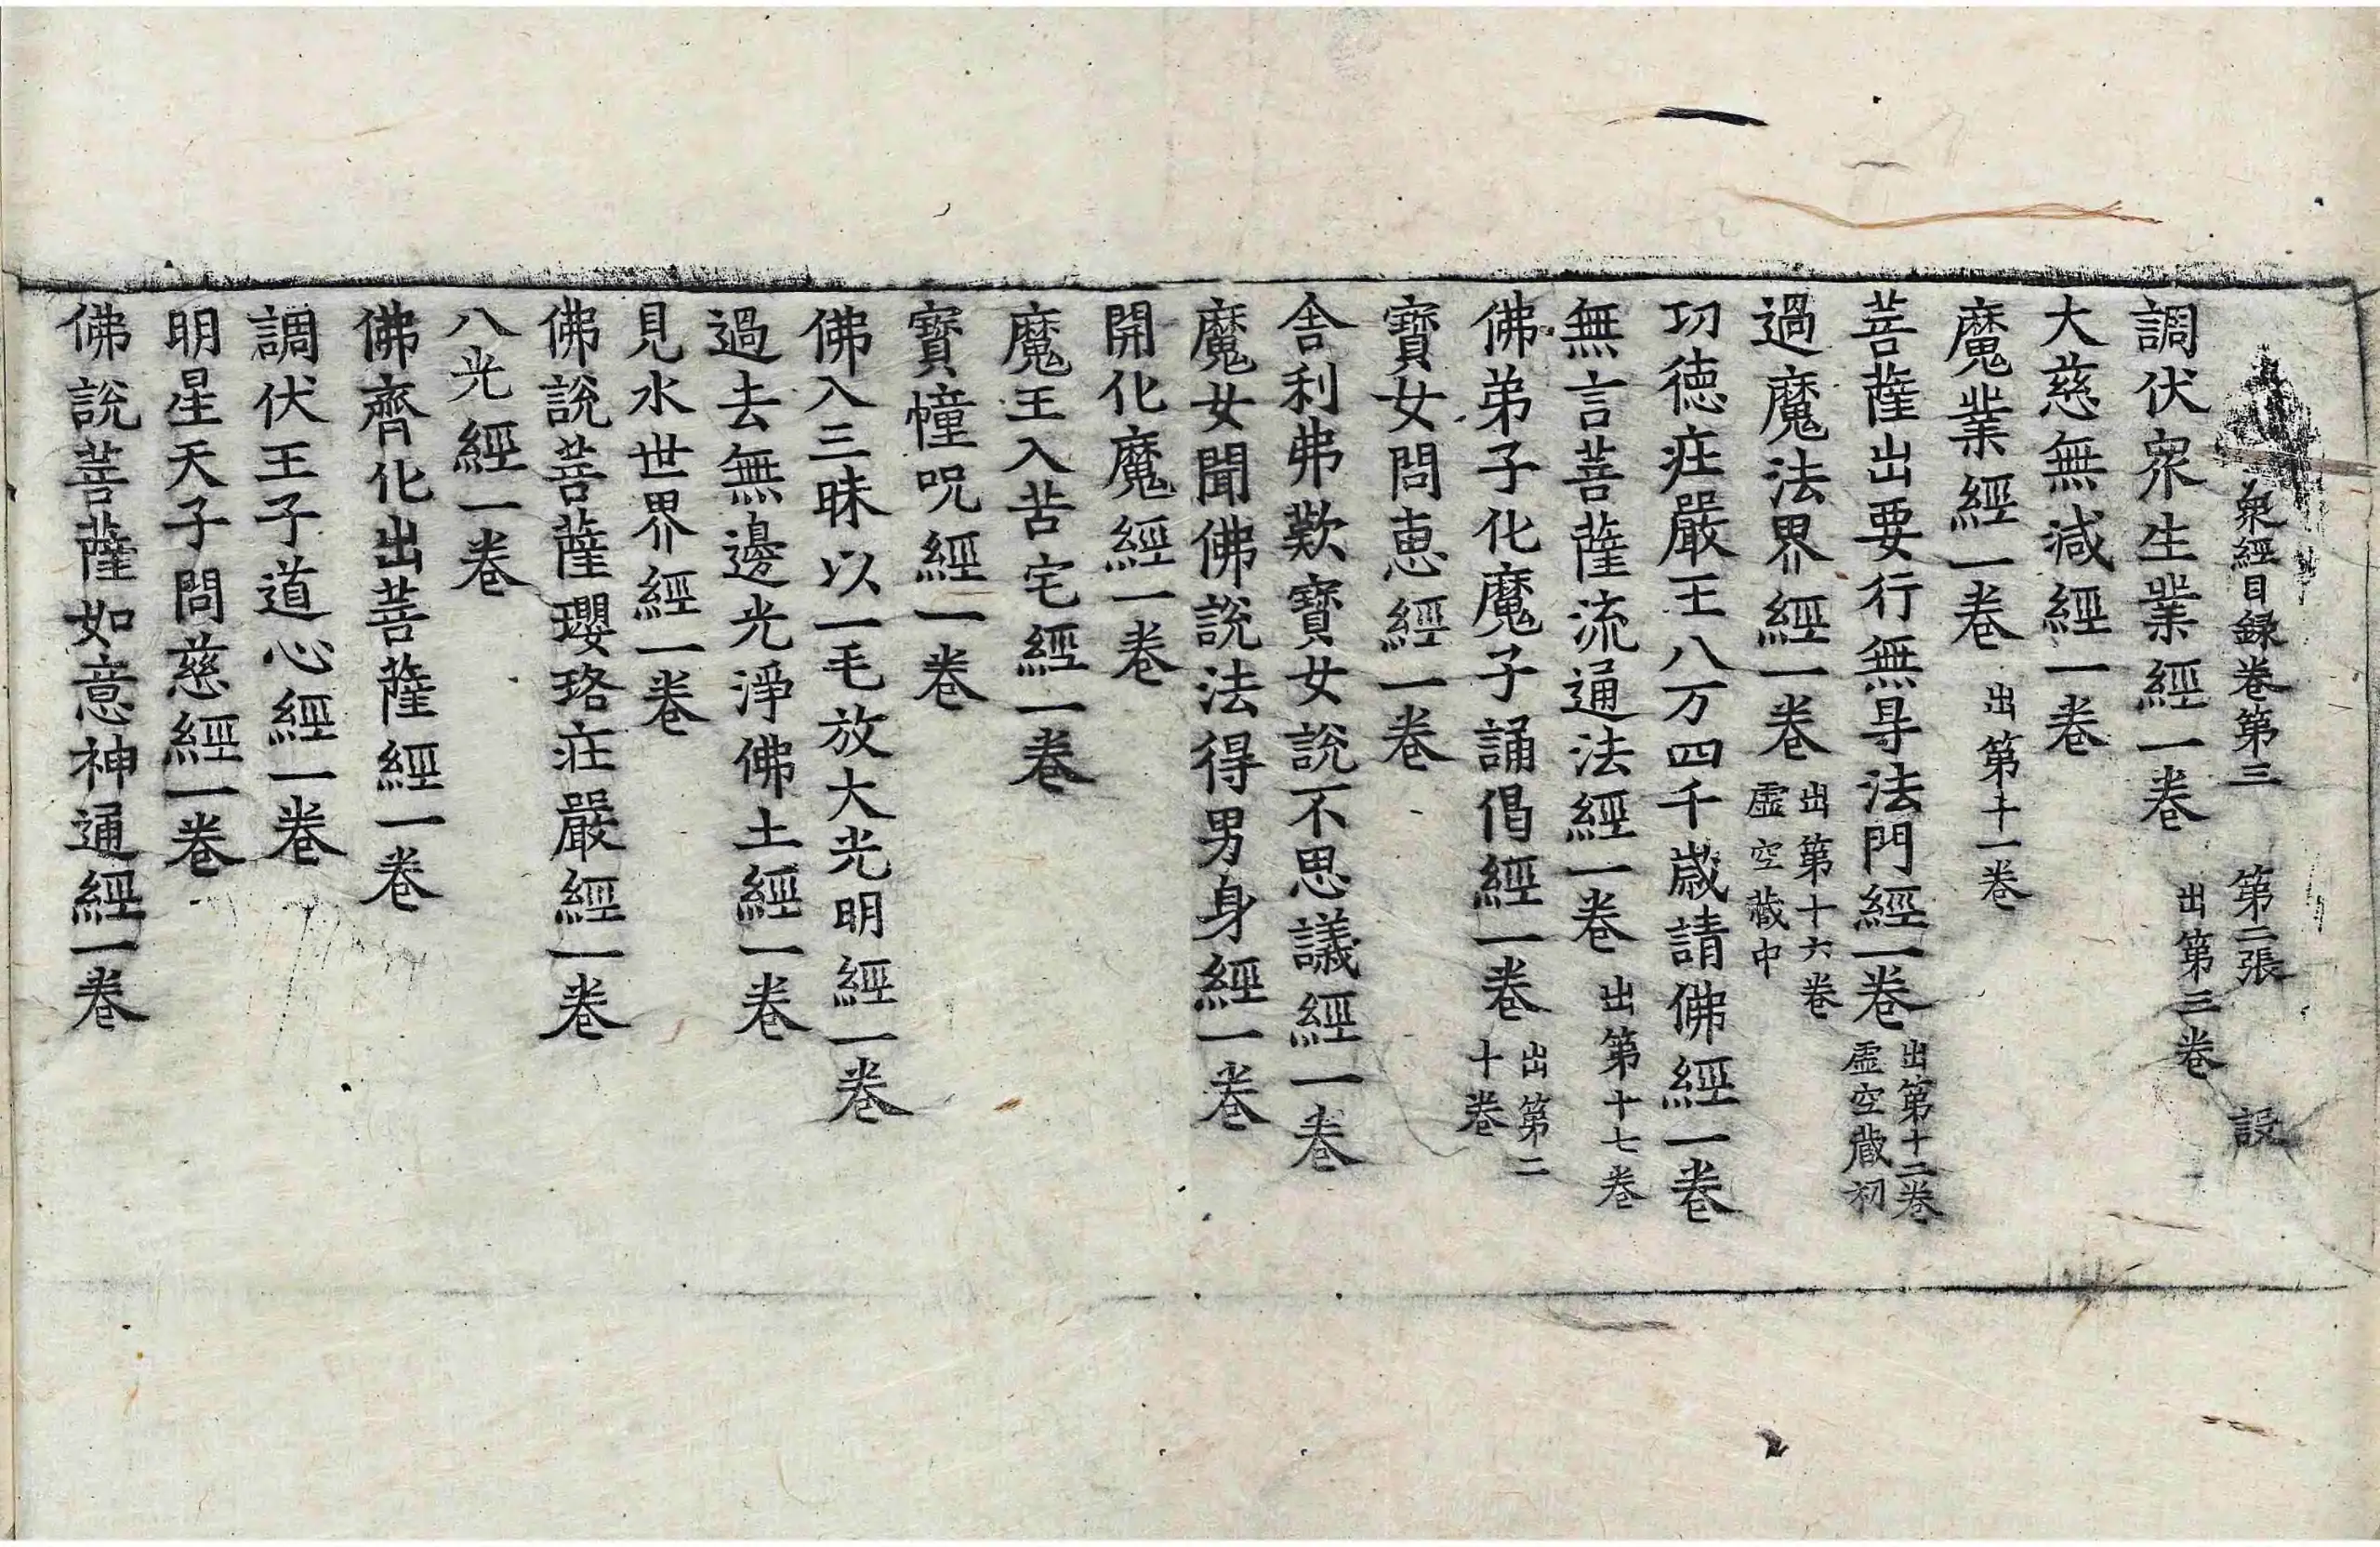 衆經目録卷第三　第二張　設
調伏眾生業經一卷　出第三卷
大慈無減經一卷
魔業經一卷　出第十一卷
菩薩出要行無㝵法門經一卷　出第十二卷虛空藏初
過魔法界經一卷　出第十六卷虛空藏中
功德疰嚴王八万四千歲請佛經一卷
無言菩薩流通法經一卷　出第十七卷
佛弟子化魔子誦偈經一卷　出第二十卷
寶女問惠經一卷
舍利弗歎寶女說不思議經一卷
魔女聞佛說法得男身經一卷
開化魔經一卷
魔王入苦宅經一卷
寶幢呪經一卷
佛入三昧以一毛放大光明經一卷
過去無邊光淨佛土經一卷
見水世界經一卷
佛說菩薩瓔珞疰嚴經一卷
八光經一卷
佛齊化出菩薩經一卷
調伏王子道心經一卷
明星天子問慈經一卷
佛說菩薩如意神通經一卷